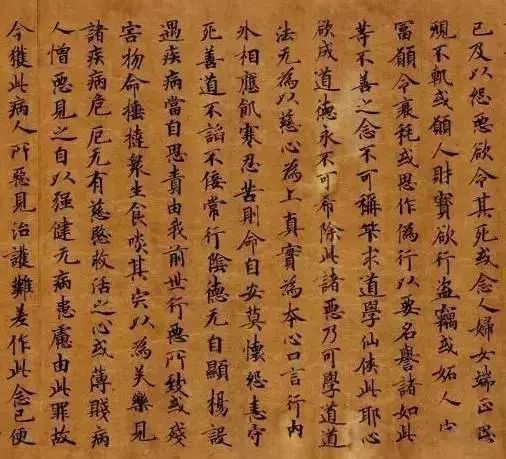 已及以怨惡欲令其死或念人婦女端正思
視不軌或願人財寶欲行盜竊或妬人
富願令衰耗或思作偽行以要名譽諸如此
等不善之念不可稱筭求道學仙俠此耶心
欲成道德永不可希除此諸惡乃可學道道
法无為以慈心為上真實為本心口言行內
外相應飢寒忍苦則命自安莫懷怨恚守
死善道不謟不佞常行陰德无自顯揚設
遇疾病當自思責由我前世行惡所致或殘
害物命捶撻衆生食噉其宍以為美樂見
諸疾病危厄无有慈愍救活之心或薄賤病
人憎惡見之自以强健无病患慮由此罪故
今獲此病人所惡見治護難差作此念已便